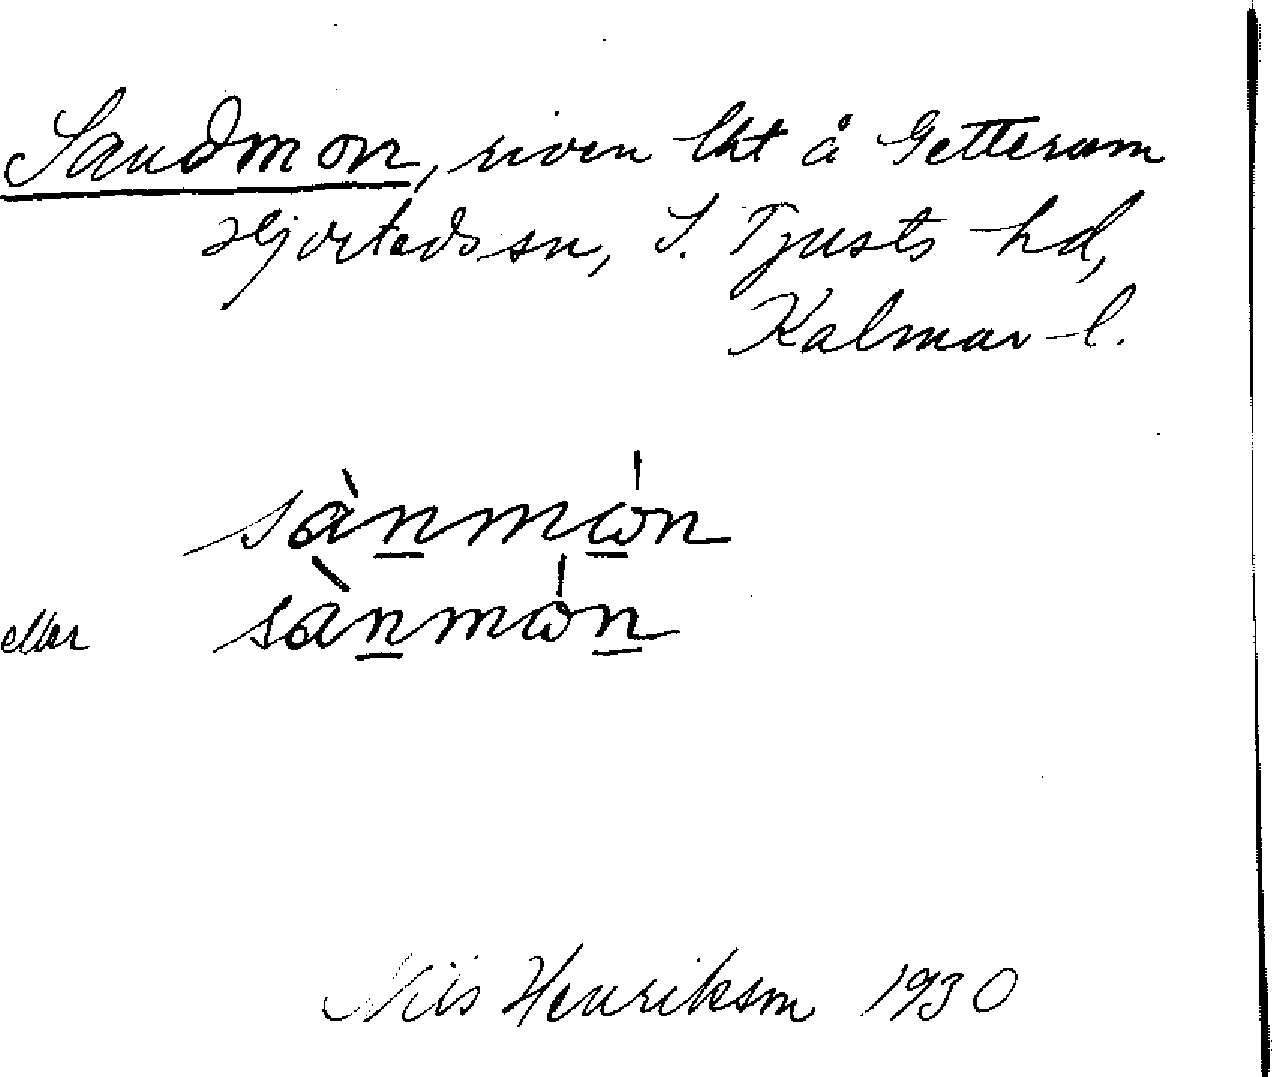 Sandmon, riven lht å Getteram
Hjorteds sn, S. Tjusts hd,
Kalmar l.
sànmώn
eller sànmώn
Nils Henriksson 1930